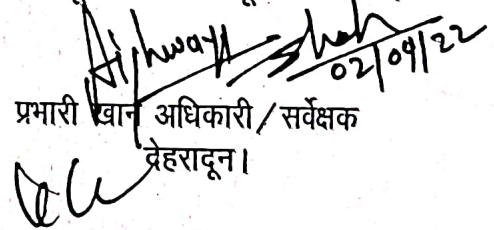 Aishwarya Shah
02/09/22
प्रभारी खान अधिकारी / सर्वेक्षक
देहरादून।